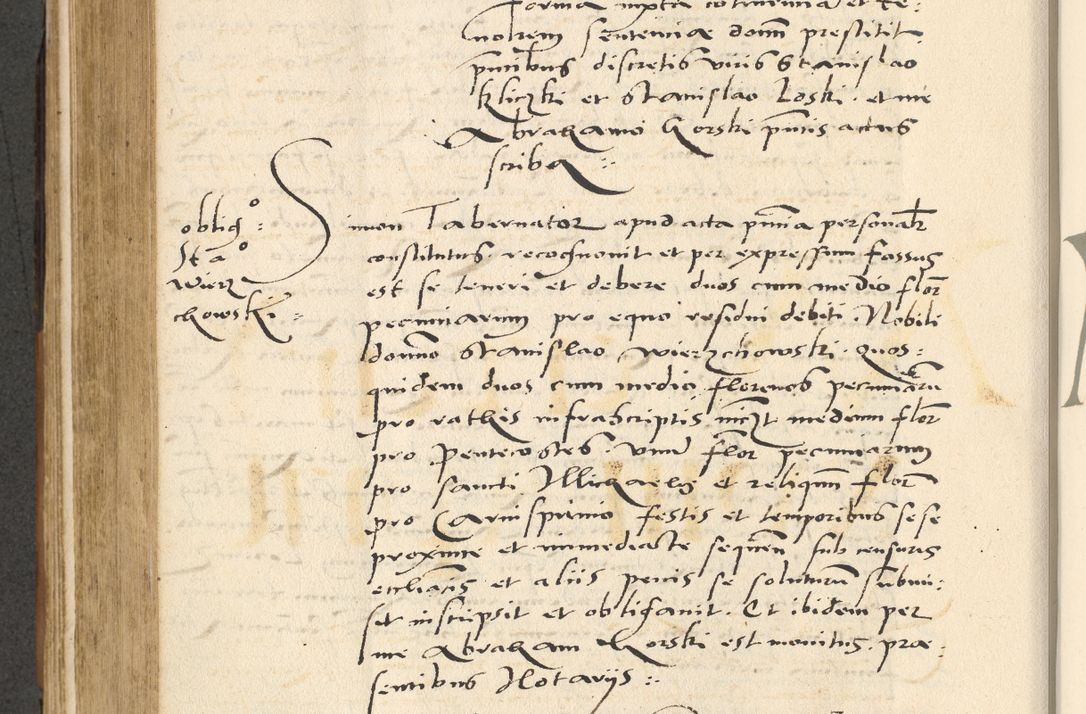 forma iuxta continentia et te:
norem sententiae domini prestitit
pntibus discretis viris Stanislao
Kliczki et Stanislao Loski. et me
Abrahamo Gorski pntis actus
scriba :.
obligo:
Sta
Wierz
chowski :
Simon Tabernator apud acta pntia personalr
constitutus. recognovit et per expressum fassus
est se teneri et debere duos cum medio flor
pecuniarum pro equo residui debiti. Nobili
domino Stanislao Wierzchowski. Quos:
quidem duos cum medio florenos pecuniaru
pro rathis infrascriptis medium flor
pro Pentecostes. Unu flor pecuniarum
pro sancti Michaelis et reliquu flor
pro Carnisprivio festis et temporibus se se
proxime et immediate sequen sub censuris
eccliacis et aliis penis se soluturu submi:
sit inscripsit et obligavit. Et ibidem per
me Abraham Gorski est monitus. prae
sentibus Notariis :.